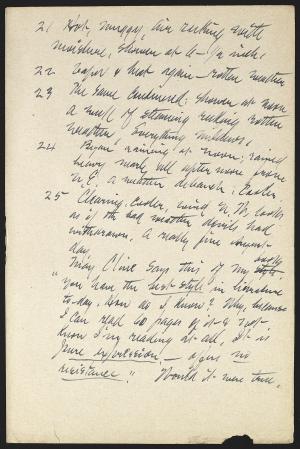 21 Hot, muggy, air reeking with
moisture, shower at 6 - 1/2 inch.
22 Vapor & heat again - rotten weather
23 The same continued; shower at noon
a mush of steaming reeking rotten
weather. Everything mildews.
24 Began raining at noon; rained
heavy nearly all afternoon from
N.E. a weather debauch; Cooler.
25 Clearing, cooler, wind N.W. looks
as if the bad weather devils had
withdrawn. A really fine
day.
"Mary Cline says this of my books
"You have the best style in literature
to-day, how do I know? Why, because
I can read 60 pages of it & not
know I'm reading at all, it is
pure expression, - offers no
resistance." Would it were true.